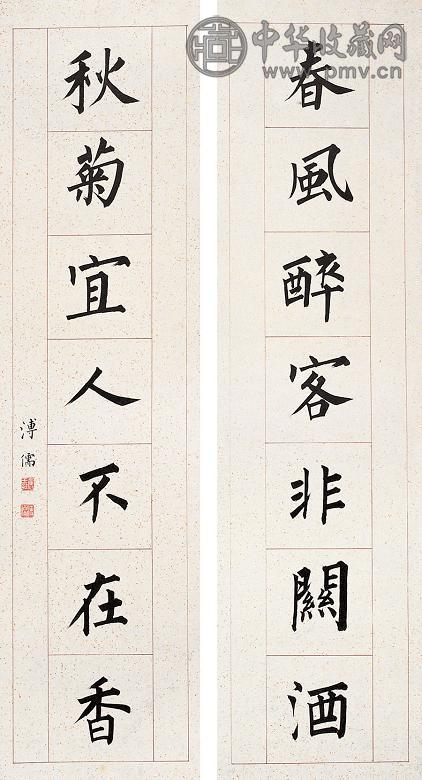 春風醉客非關酒
秋菊宜人不在香
溥儒
中华收藏网
www.pmv.cn